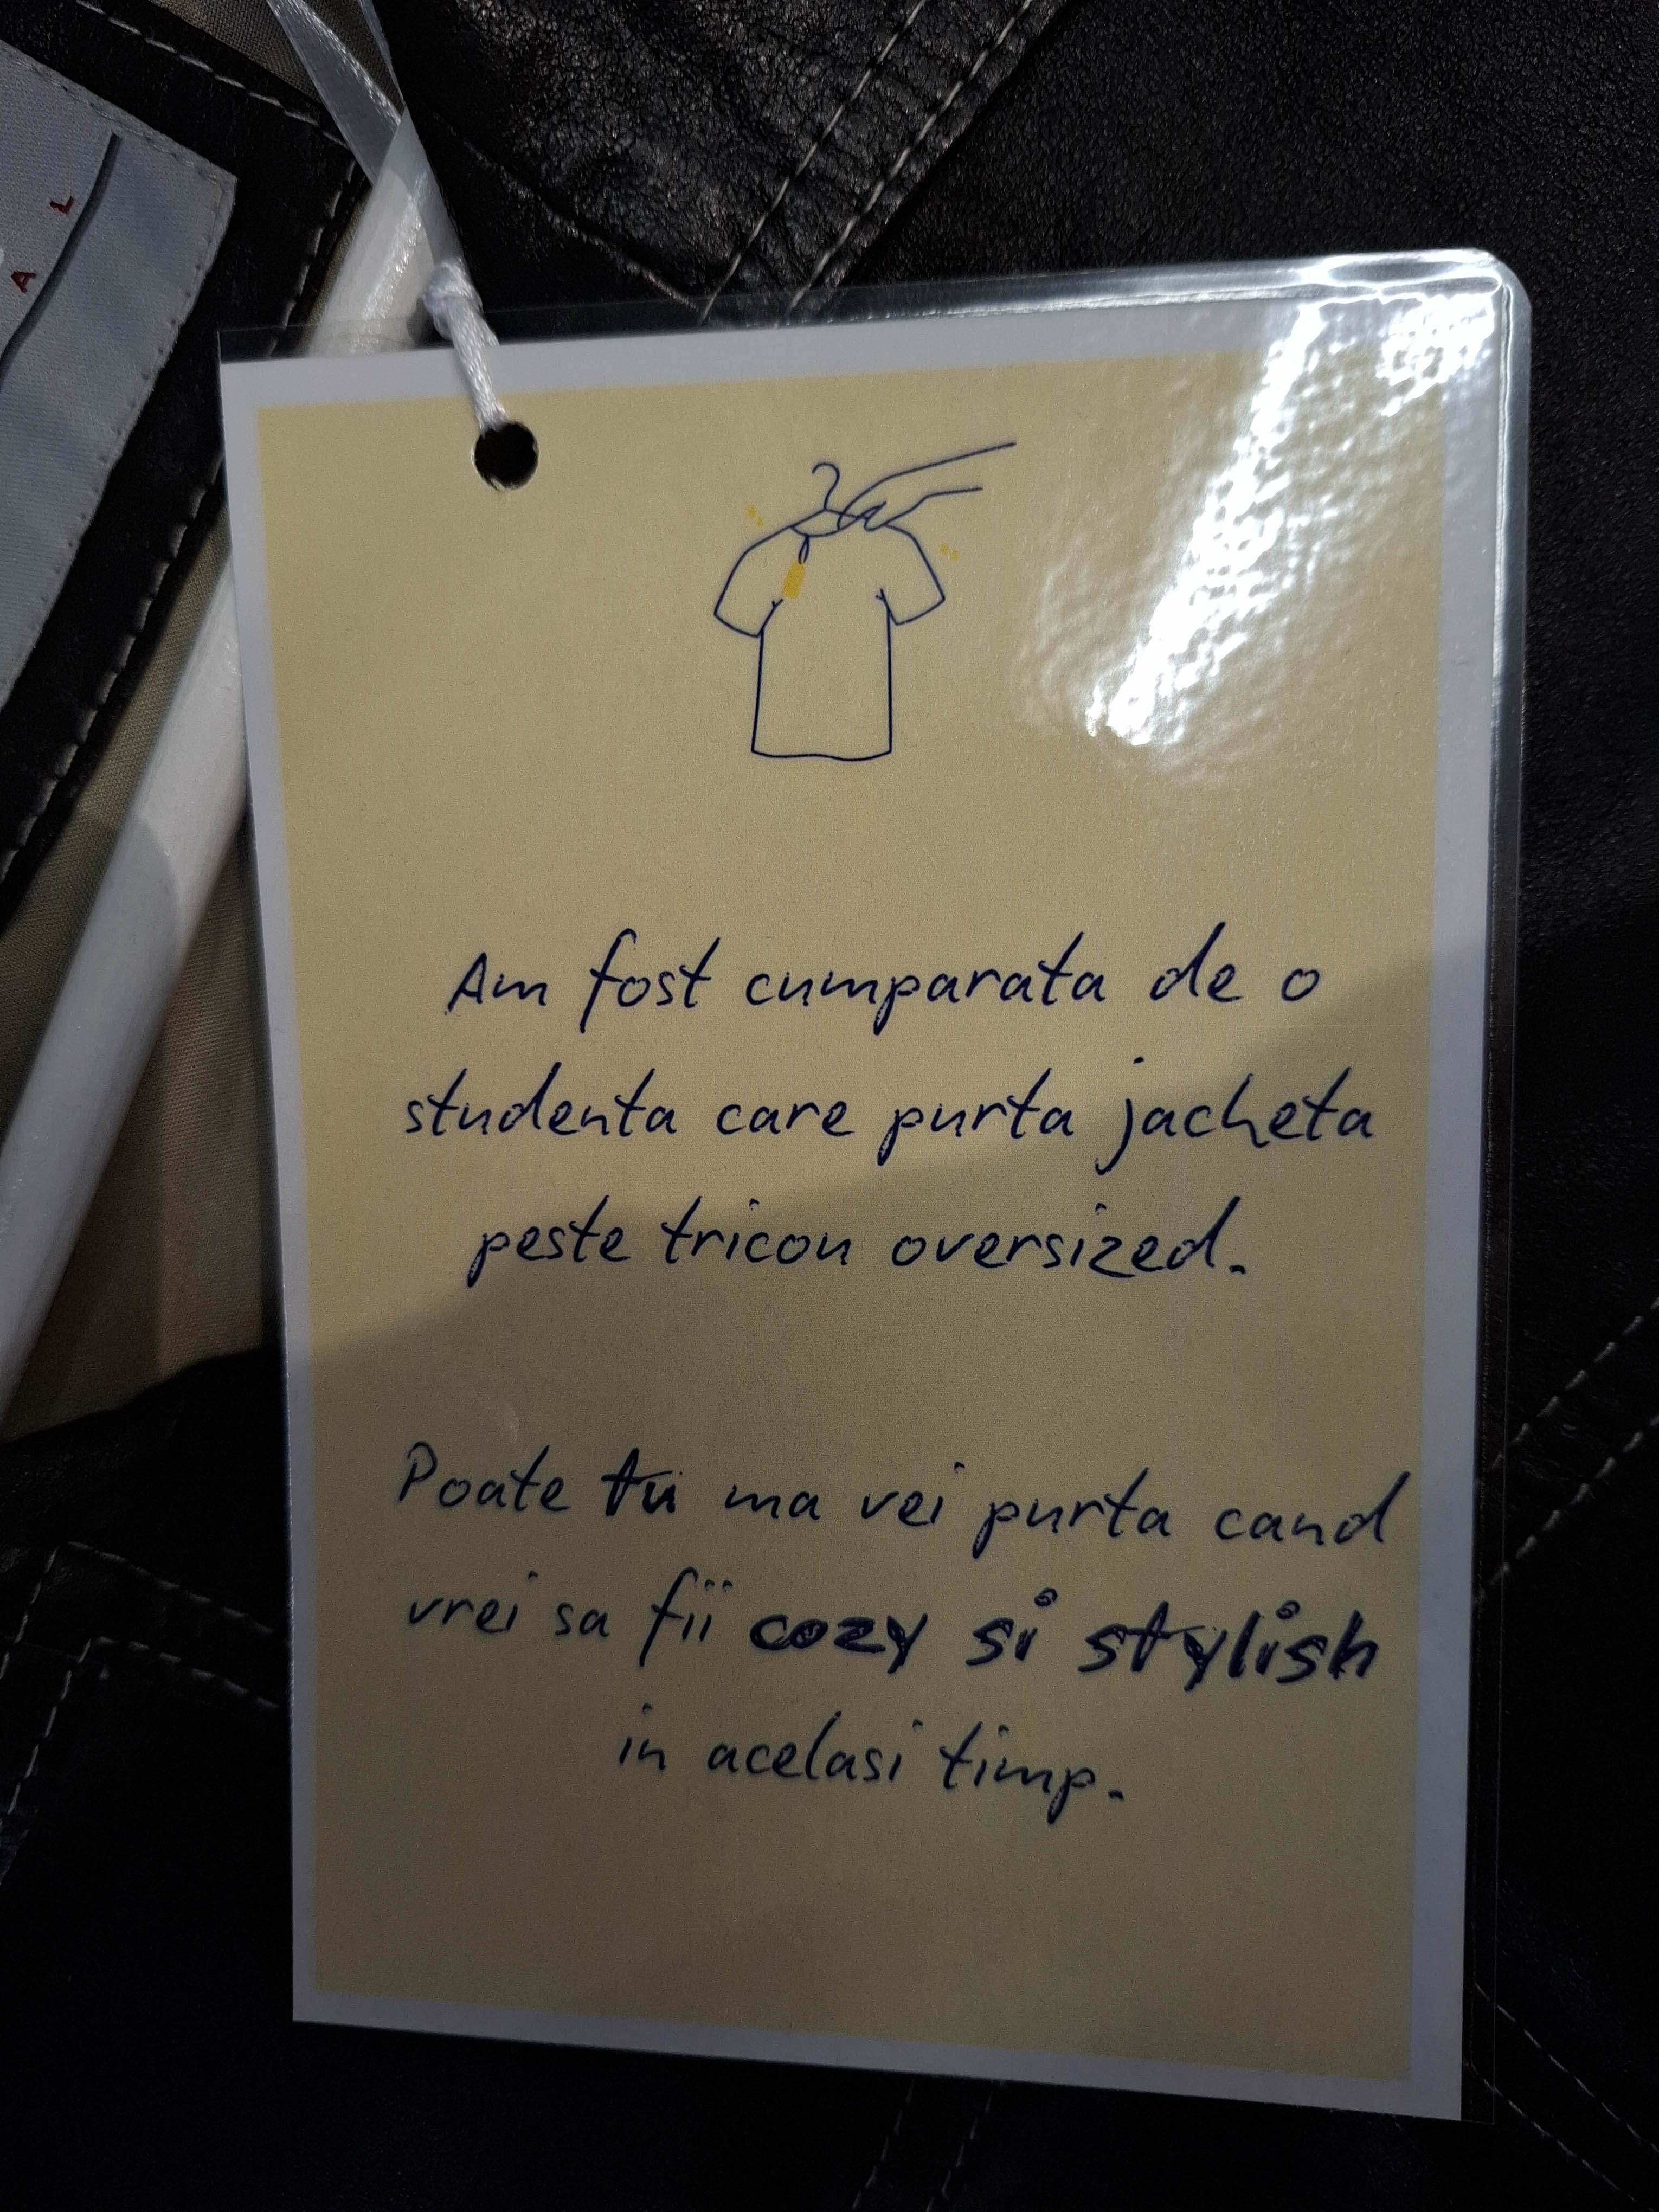 L
A
Am fost cumparata de o
studenta care purta jacheta
peste tricou oversized.
Poate tu ma vei purta cand
vrei sa fii cozy si stylish
in acelasi timp.